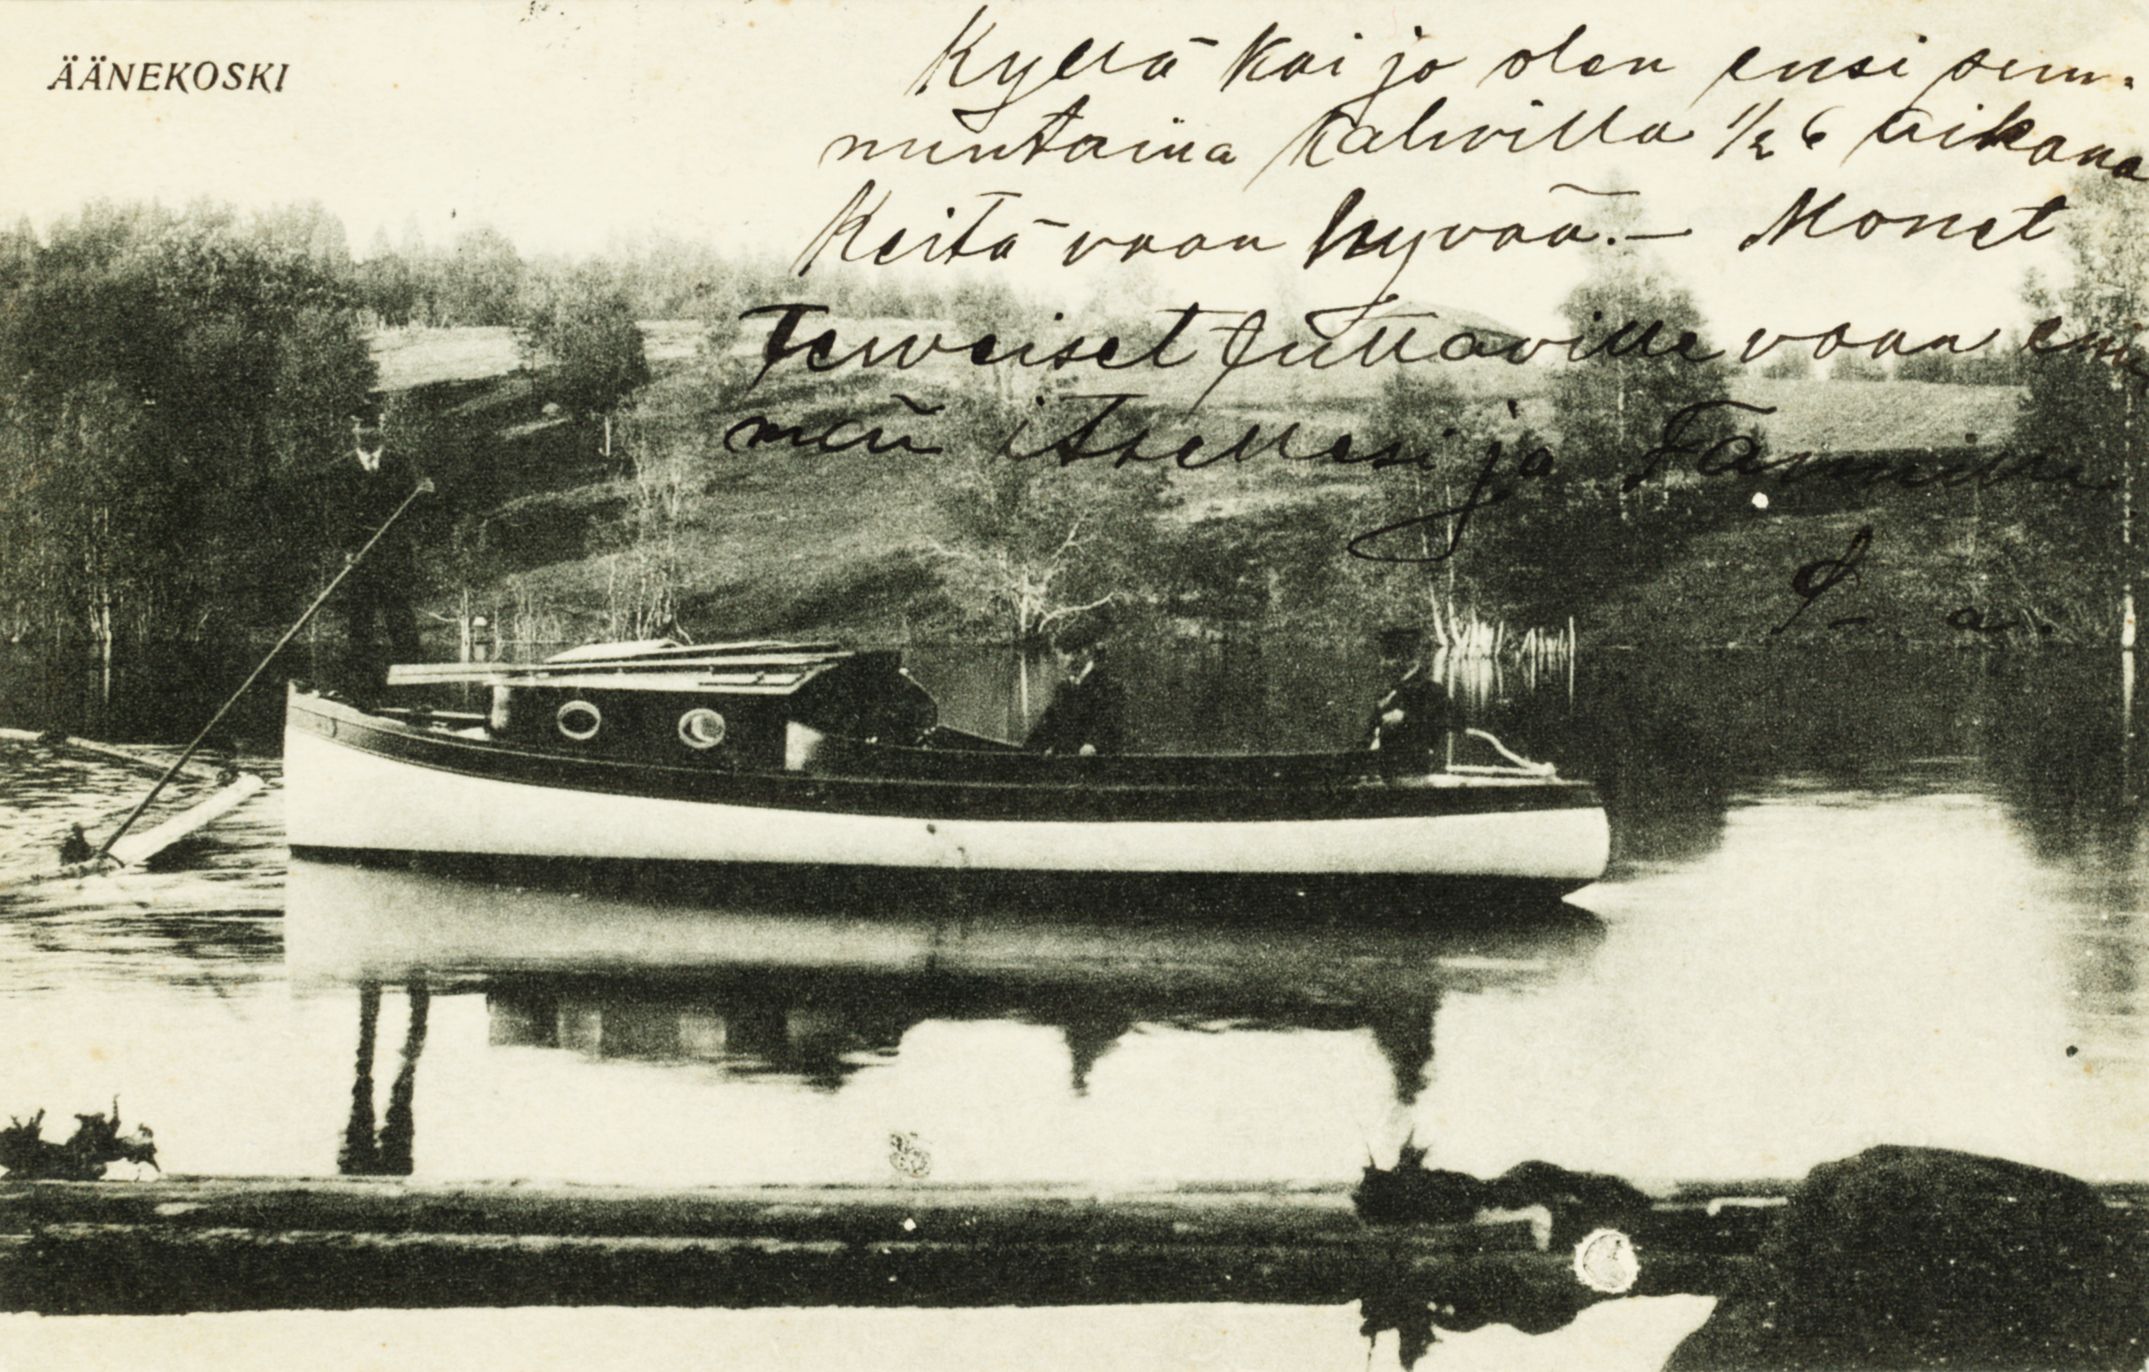 ÄÄNEKOSKI
Kyllä kai jo olen ensi sun-
nuntaina kahvilla ½ 6 aikana
Keitä vaan hyvää.— Monet
Terveiset tuttaville vaan
itsellesi ja